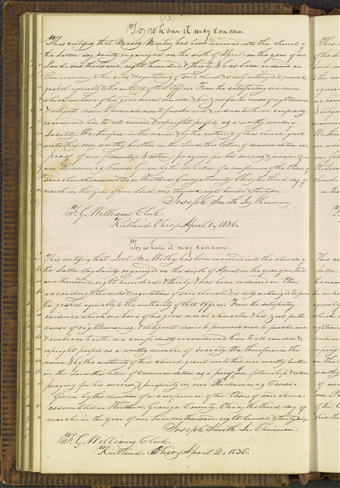 (33)
To whom it may concern.
This certifies that Mosley has been received into the church of
the Latter day Saints organized on the sixth of April in the year of our
Lord one thousand eight hundred & thirty & has been ordained an
according to the rules & regulations of said church & is duly authorized to preach
gospel agreeably to the authority of that office. From the satisfactory
which we have of his good moral character, & his zeal for the cause of righteousness
& diligent desire to persuade men to forsake evil & embrace truth we confidently
recommend him to all candid & upright people as a worthy member of
Society. We therefore in the name & by the authority of this church grant
unto this our worthy brother in the Lord this letter of commendation as a
proof of our fellowship & esteem praying for his success & prosperity in
our Redeemer's cause. Given by the direction of a conference of the Elders of
said church assembled in Kirtland Geauga County Ohio the third day of
march in the year of our Lord one thousand eight hundred thirty six.
Joseph Smith Jr. Chairman.
F. G. Williams Clerk.
Kirtland Ohio, April 1, 1836.
To whom it may concern
This certifies that Joel Mc has been received into the church of
the Latter day Saints organized on the sixth of April in the year of our Lord
one thousand, eight hundred & thirty & has been ordained an Elder
according to the rules & regulations of said church & is duly authorized to preach
the gospel agreeably to the authority of that office. From the satisfactory
evidence which we have of his good moral character, & his zeal for the
cause of righteousness, & diligent desire to persuade men to forsake evil
& embrace truth we confidently recommend him to all candid &
upright people as a worthy member of society. We therefore in the
name & by the authority of this church grant unto this our worthy brother
in the Lord this letter of commendation as a proof of our fellowship & esteem
praying for his success & prosperity in our Redeemer's Cause.
Given by the direction of a conference of the Elders of said church
assembled in Kirtland Geauga County, Ohio the third day of
march in the year of our Lord one thousand eight hundred & thirty six.
Joseph Smith Jr. Chairman.
F. G. Williams Clerk.
Kirtland, Ohio, April 2, 1836.